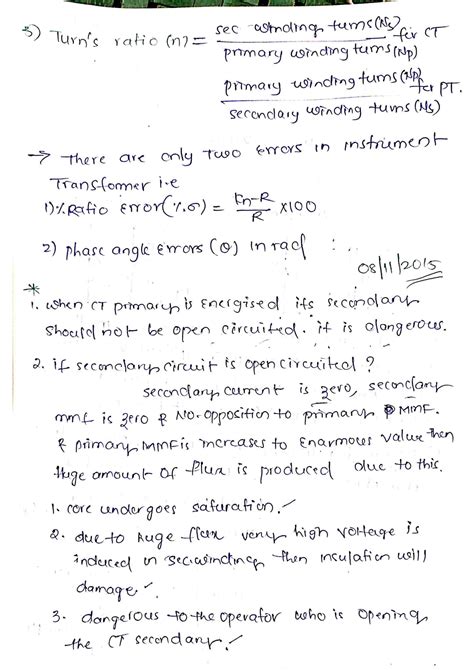 5) Turn's ratio (n) = sec winding turns (Ns) / primary winding turns (Np) for CT
primary winding turns (Np) / secondary winding turns (Ns) for PT.
→ There are only Two errors in instrument
Transformer i.e
1) % Ratio error (%σ) = Kn-R / R ×100
2) phase angle errors (θ) in rad
08/11/2015
* 
1. when CT primary is energised its secondary
should not be open circuited. it is dangerous.
2. if secondary circuit is open circuited ?
secondary current is zero, secondary
mmf is zero & No. opposition to primary MMF.
& primary MMF is increases to Enarmous value then
Huge amount Of flux is produced due to this.
1. core undergoes saturation.
2. due to Huge flux very high voltage is
induced in sec winding then insulation will
damage.
3. dangerous to the operator who is opening
the CT secondary.